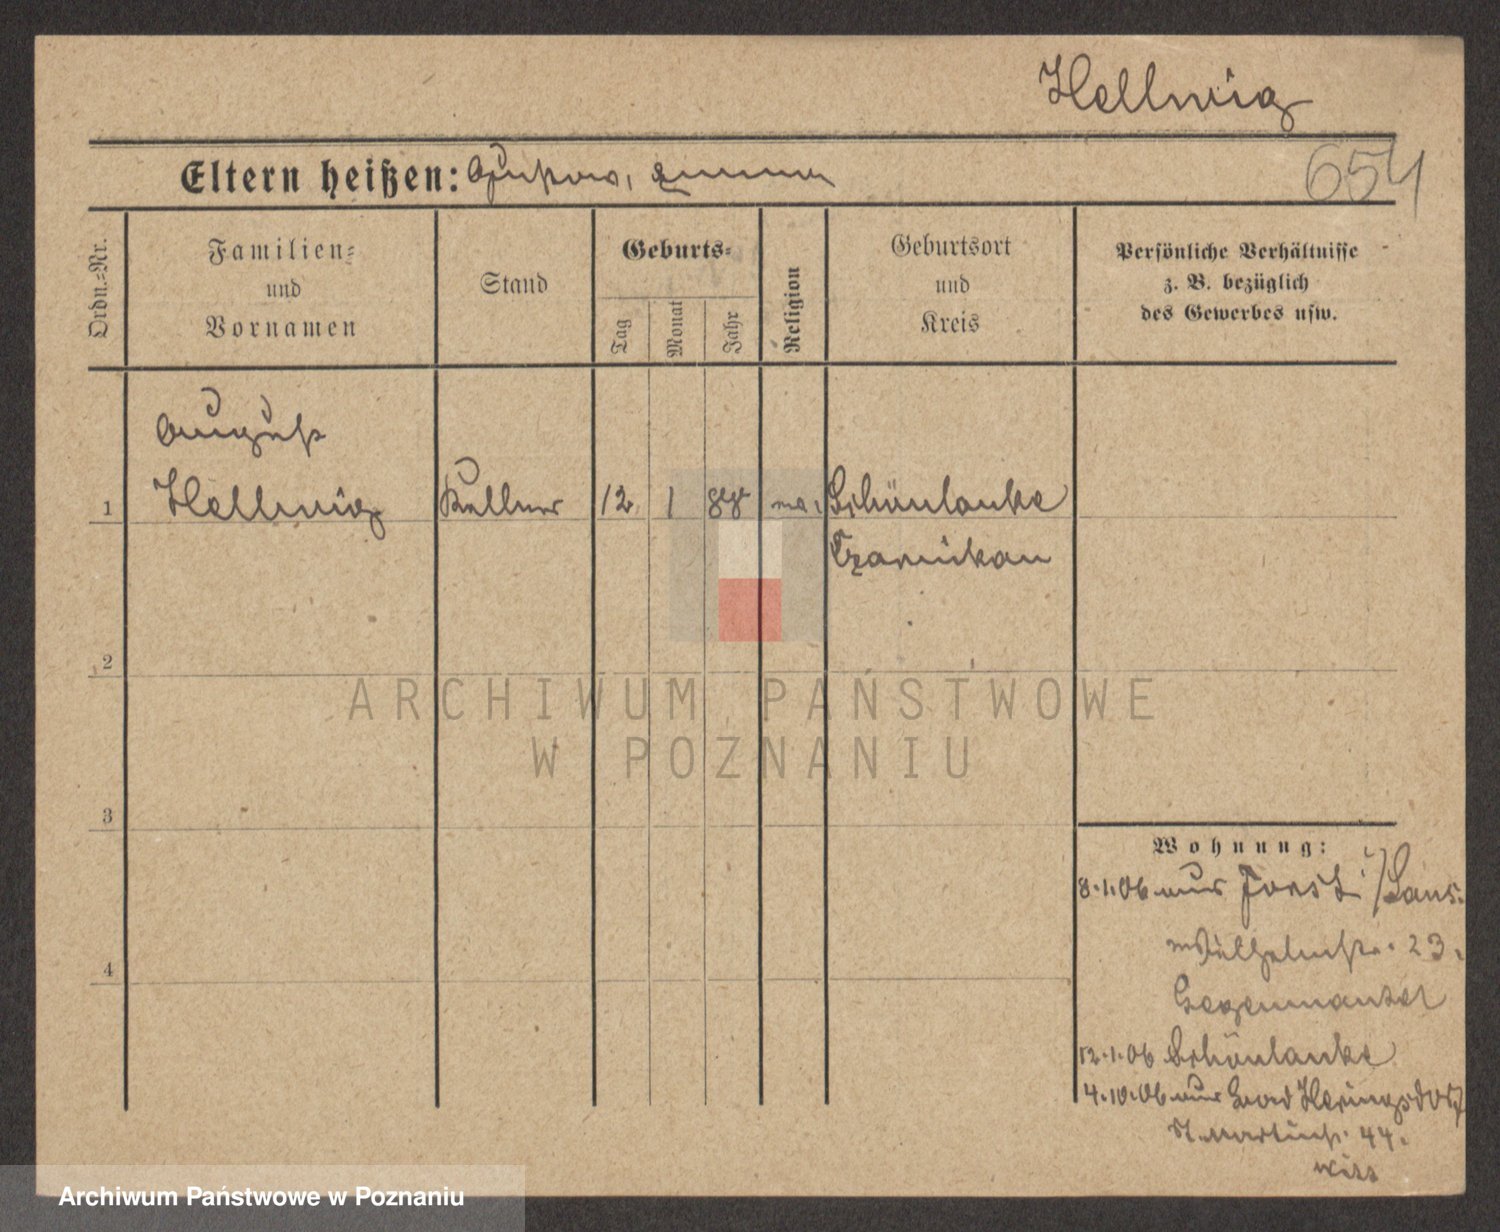 Hellwig
Eltern heißen: Gustav, Emma
654
Ordn.=Nr.
Familien=
und
Vornamen
Stand
Geburts=
Tag
Monat
Jahr
Religion
Geburtsort
und
Kreis
Persönliche Verhältnisse
z. B. bezüglich
des Gewerbes usw.
August
1 Hellwig Kellner 12 1 Schönlanke
Czarnikau
2
3
4
Wohnung:
8.1.06 aus Forst i/Laus.
Wilhelmstr. 23.
12.1.06 Schönlanke
4.10.06 aus Heringsdorf
St. Martinstr. 44.
ARCHIWUM PAŃSTWOWE
W POZNANIU
Archiwum Państwowe w Poznaniu